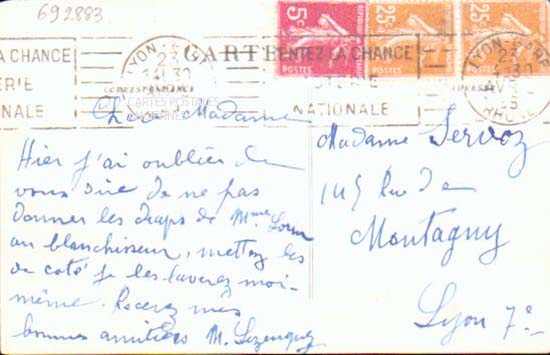 692883
5c 25c 25c
POSTES POSTES POSTES
LYON-GARE
23
14 30
RHONE
TENTEZ LA CHANCE
LOTERIE
NATIONALE
CARTE
CORRESPONDANCE
CARTES POSTALES
ANCIENNES
Chère Madame
Hier j'ai oublier de
vous dire de ne pas
donner les draps de Mme
au blanchisseur, mettez les
de coté je les laverez moi-
même. Recevez mes
bonnes amitiées M.
Madame Servoz
145 Rue de
Montagny
Lyon 7e